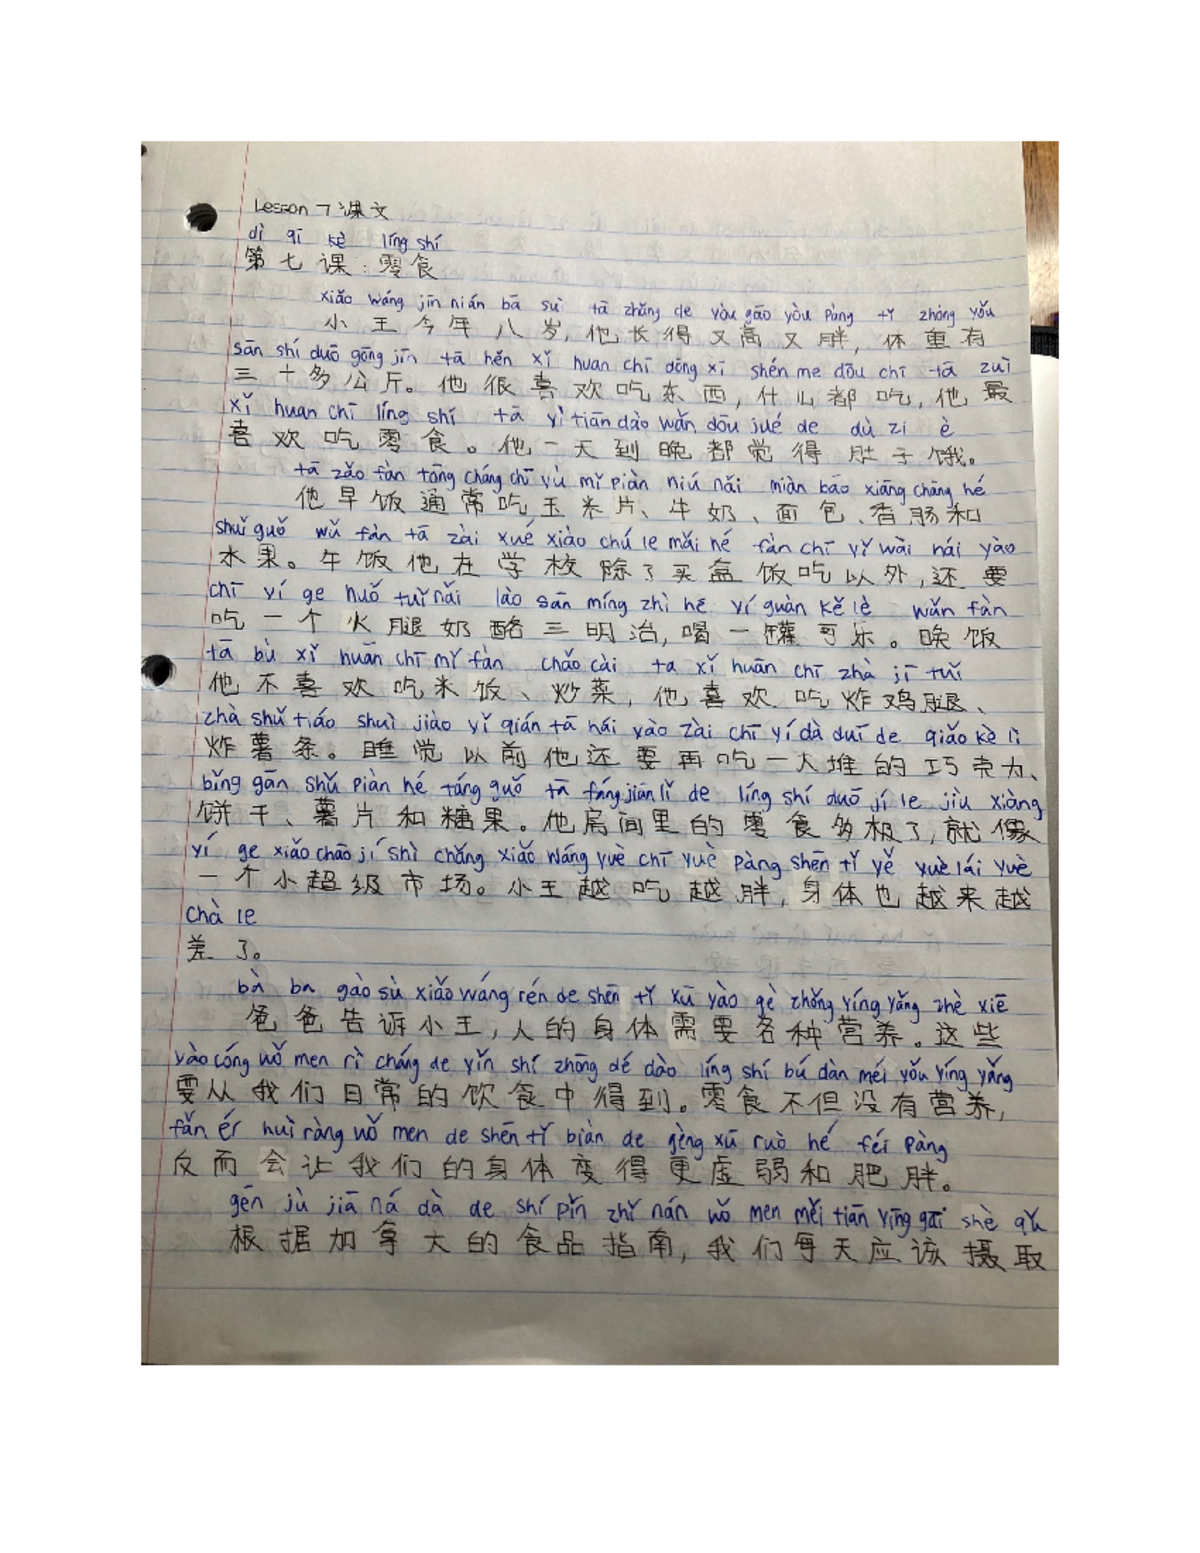 Lesson 7 课文
dì qī kè líng shí
第七课:零食
xiǎo wáng jīn nián bā suì tā zhǎng de yòu gāo yòu pàng tǐ zhòng yǒu
小王今年八岁,他长得又高又胖,体重有
sān shí duō gōng jīn tā hěn xǐ huan chī dōng xī shén me dōu chī tā zuì
三十多公斤。他很喜欢吃东西,什么都吃,他最
xǐ huan chī líng shí tā yì tiān dào wǎn dōu jué de dù zi è
喜欢吃零食。他一天到晚都觉得肚子饿。
tā zǎo fàn tōng cháng chī yù mǐ piàn niú nǎi miàn bāo xiāng cháng hé
他早饭通常吃玉米片、牛奶、面包、香肠和
shuǐ guǒ wǔ fàn tā zài xué xiào chú le mǎi hé fàn chī yǐ wài hái yào
水果。午饭他在学校除了买盒饭吃以外,还要
chī yí ge huǒ tuǐ nǎi lào sān míng zhì hē yí guàn kě lè wǎn fàn
吃一个火腿奶酪三明治,喝一罐可乐。晚饭
tā bù xǐ huān chī mǐ fàn chǎo cài ta xǐ huān chī zhà jī tuǐ
他不喜欢吃米饭、炒菜,他喜欢吃炸鸡腿、
zhà shǔ tiáo shuì jiào yǐ qián tā hái yào zài chī yí dà duī de qiǎo kè lì
炸薯条。睡觉以前他还要再吃一大堆的巧克力、
bǐng gān shǔ piàn hé táng guǒ tā fáng jiān lǐ de líng shí duō jí le jiù xiàng
饼干、薯片和糖果。他房间里的零食多极了,就像
yí ge xiǎo chāo jí shì chǎng xiǎo wáng yuè chī yuè pàng shēn tǐ yě yuè lái yuè
一个小超级市场。小王越吃越胖,身体也越来越
chà le
差了。
bà ba gào sù xiǎo wáng rén de shēn tǐ xū yào gè zhǒng yíng yǎng zhè xiē
爸爸告诉小王,人的身体需要各种营养。这些
yào cóng wǒ men rì cháng de yǐn shí zhōng dé dào líng shí bú dàn méi yǒu yíng yǎng
要从我们日常的饮食中得到。零食不但没有营养,
fǎn ér huì ràng wǒ men de shēn tǐ biàn de gèng xū ruò hé féi pàng
反而会让我们的身体变得更虚弱和肥胖。
gēn jù jiā ná dà de shí pǐn zhǐ nán wǒ men měi tiān yīng gāi shè qǔ
根据加拿大的食品指南,我们每天应该摄取